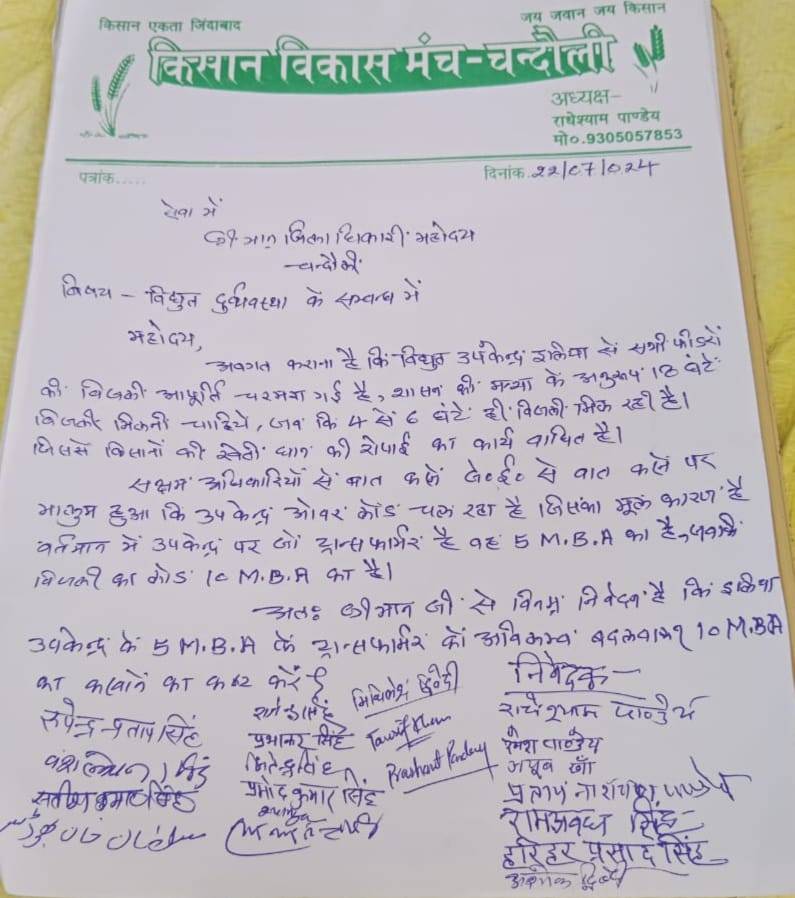 किसान एकता जिंदाबाद
जय जवान जय किसान
किसान विकास मंच-चन्दौली
अध्यक्ष-
राधेश्याम पाण्डेय
मो०.9305057853
पत्रांक.....
दिनांक.22/07/024
सेवा में
श्रीमान जिलाधिकारी महोदय
चन्दौली
विषय - विद्युत दुर्व्यवस्था के सम्बन्ध में
महोदय,
अवगत कराना है कि विद्युत उपकेन्द्र इलिया से सभी फीडरों
की बिजली आपूर्ति चरमरा गई है, शासन की मन्शा के अनुरूप 18 घंटे
बिजली मिलनी चाहिये, जब कि 4 से 6 घंटे ही बिजली मिल रही है।
जिससे किसानों की खेती धान की रोपाई का कार्य बाधित है।
सक्षम अधिकारियों से बात करने जे०ई० से बात करने पर
मालुम हुआ कि उपकेन्द्र ओवर लोड चल रहा है जिसका मूल कारण है
वर्तमान में उपकेन्द्र पर जो ट्रान्सफार्मर है वह 5 M.B.A का है, जबकि
बिजली का लोड 10 M.B.A का है।
अतः श्रीमान जी से विनम्र निवेदन है कि इलिया
उपकेन्द्र के 5 M.B.A के ट्रान्सफार्मर को अविलम्ब बदलवाकर 10 M.B.A
का करवाने का कष्ट करें।
निवेदक-
मिथिलेश द्विवेदी
राधेश्याम पाण्डेय
रूपेन्द्र प्रताप सिंह
प्रभाकर सिंह
Tausif Khan
रमेश पाण्डेय
जितेन्द्र सिंह
Prashant Pandey
खाँ
सतीश कुमार सिंह
प्रमोद कुमार सिंह
प्रताप नारायण पाण्डेय
रामअवध सिंह
हरिहर प्रसाद सिंह
द्विवेदी